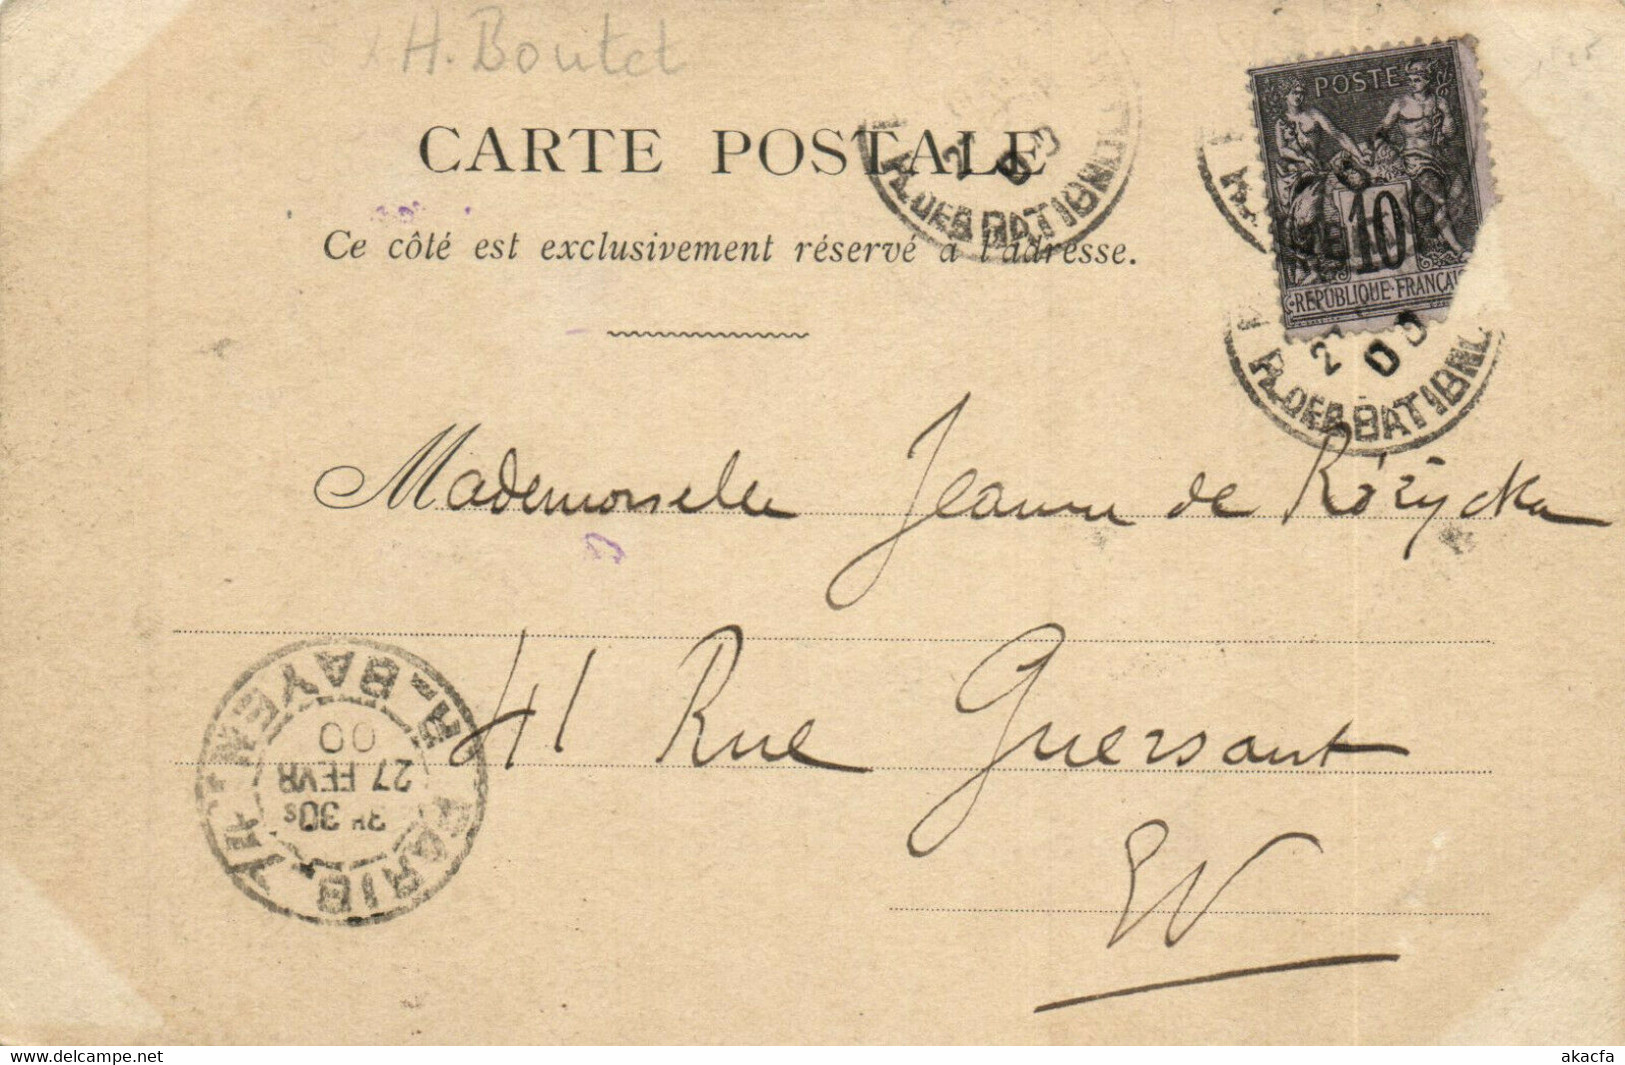 H. Boutet
POSTE
10
REPUBLIQUE FRANÇAI
CARTE POSTALE
Ce côté est exclusivement réservé à l'adresse.
R. DES BATIGNOL
R. DES BATIGNOL
Mademoiselle Jeanne de Rózycka
41 Rue Guersant
EV
PARIS XVII
R. BAYEN
3H 30S
27 FEVR
00
akacfa
delcampe.net